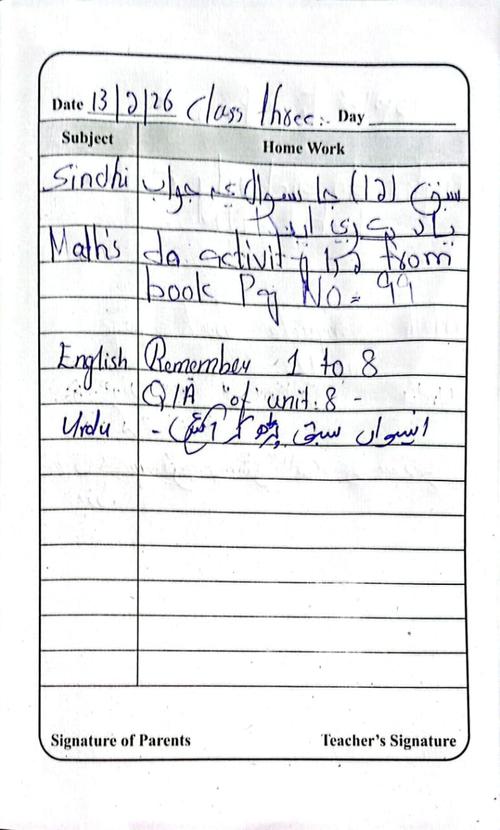 Date 13/2/26 Class three:- Day
Subject Home Work
Sindhi سبق (12) جا سوال ۽ جواب
ياد ڪري اچو
Math's do activity from
book Pg No = 99
English Remember 1 to 8
Q/A "of" unit: 8 -
Urdu انیسواں سبق پڑھ کر آئیں -
Signature of Parents Teacher's Signature